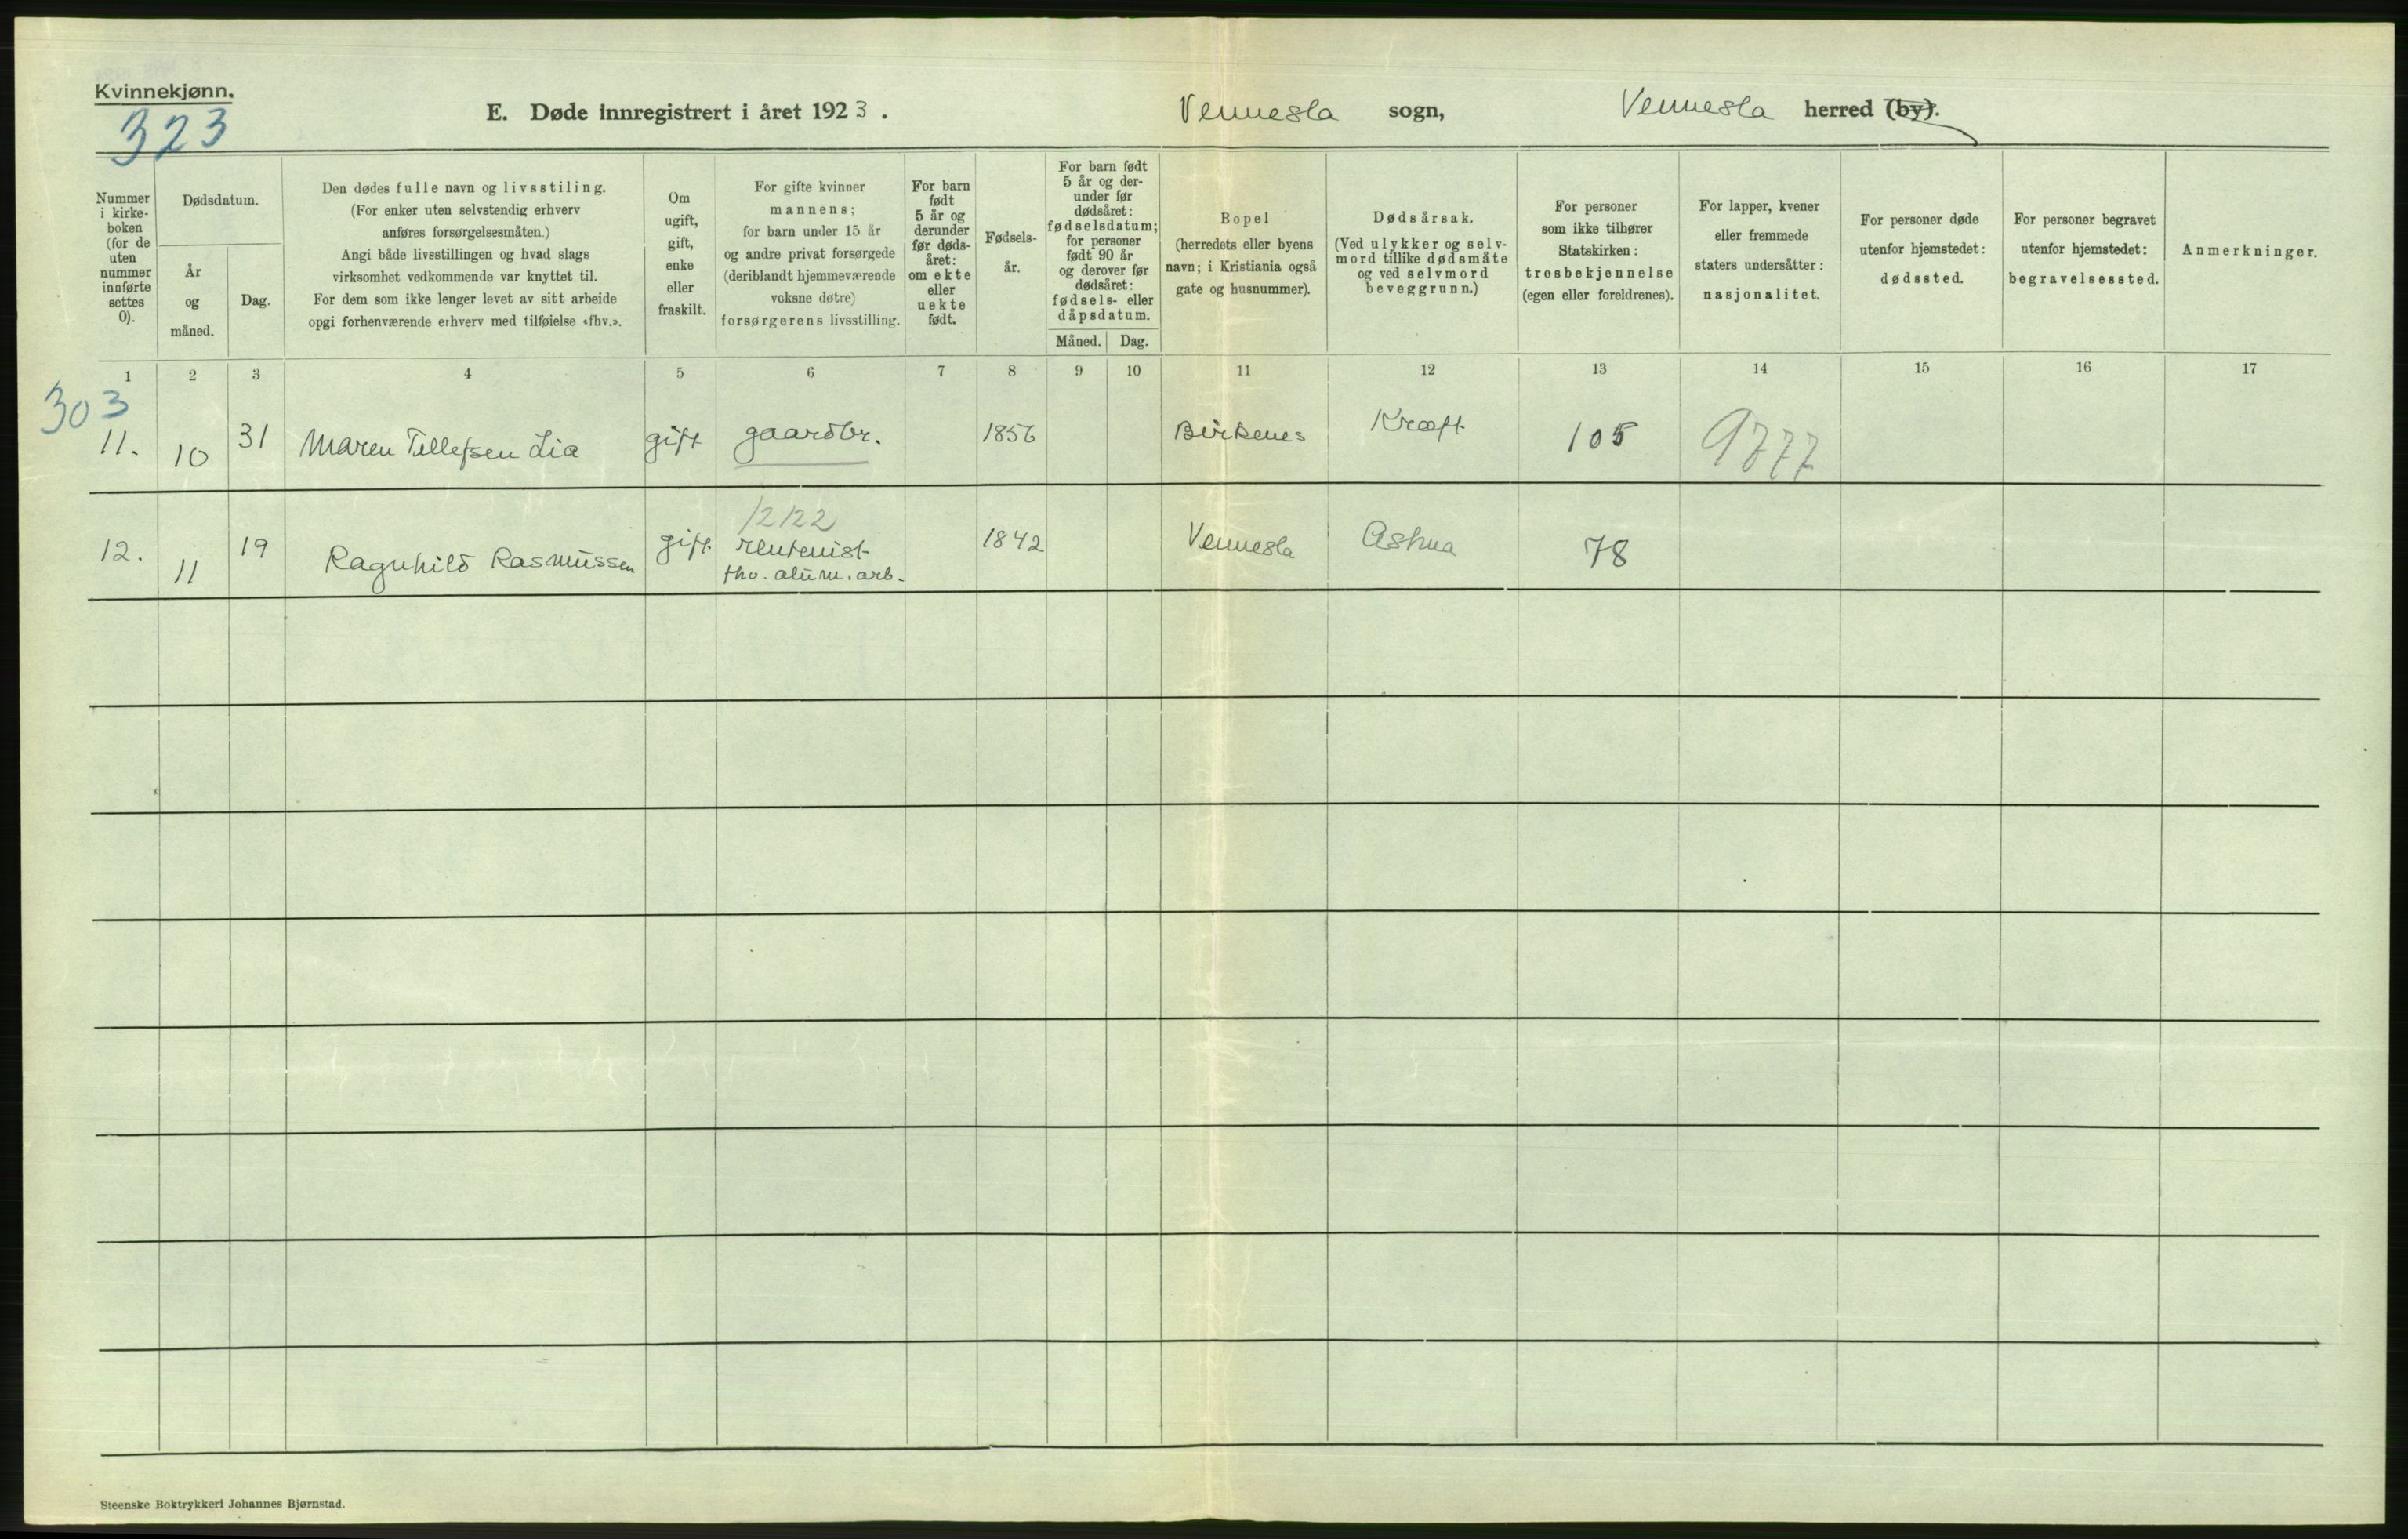 Kvinnekjønn.
323
E. Døde innregistrert i året 1923.
Vennesla sogn,
Vennesla herred (by).
Nummer
i kirke-
boken
(for de
uten
nummer
innførte
settes
0).
Dødsdatum.
År
og
måned.
Dag.
Den dødes fulle navn og livsstiling.
(For enker uten selvstendig erhverv
anføres forsørgelsesmåten.)
Angi både livsstillingen og hvad slags
virksomhet vedkommende var knyttet til.
For dem som ikke lenger levet av sitt arbeide
opgi forhenværende erhverv med tilføielse «fhv.».
Om
ugift,
gift,
enke
eller
fraskilt.
For gifte kvinner
mannens;
for barn under 15 år
og andre privat forsørgede
(deriblandt hjemmeværende
voksne døtre)
forsørgerens livsstilling.
For barn
født
5 år og
derunder
før døds-
året:
om ekte
eller
uekte
født.
Fødsels-
år.
For barn født
5 år og der-
under før
dødsåret:
fødselsdatum;
for personer
født 90 år
og derover før
dødsåret:
fødsels- eller
dåpsdatum.
Måned.
Dag.
Bopel
(herredets eller byens
navn; i Kristiania også
gate og husnummer).
Dødsårsak.
(Ved ulykker og selv-
mord tillike dødsmåte
og ved selvmord
beveggrunn.)
For personer
som ikke tilhører
Statskirken:
trosbekjennelse
(egen eller foreldrenes).
For lapper, kvener
eller fremmede
staters undersåtter:
nasjonalitet.
For personer døde
utenfor hjemstedet:
dødssted.
For personer begravet
utenfor hjemstedet:
begravelsessted.
Anmerkninger.
1 2 3 4 5 6 7 8 9 10 11 12 13 14 15 16 17
303
11. 10 31 Maren Tellefsen Lia gift gaardbr. 1856 Birkenes Kræft 105 9777
1212
12. 11 19 Ragnhild Rasmussen gift rentenist 1842 Vennesla Astma 78
fhv. alum. arb.
Steenske Boktrykkeri Johannes Bjørnstad.